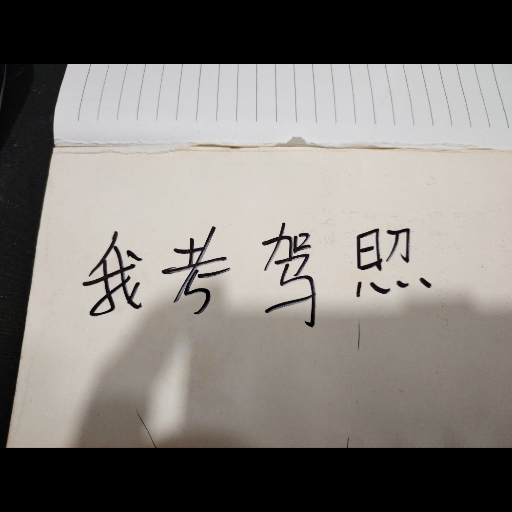 我考驾照